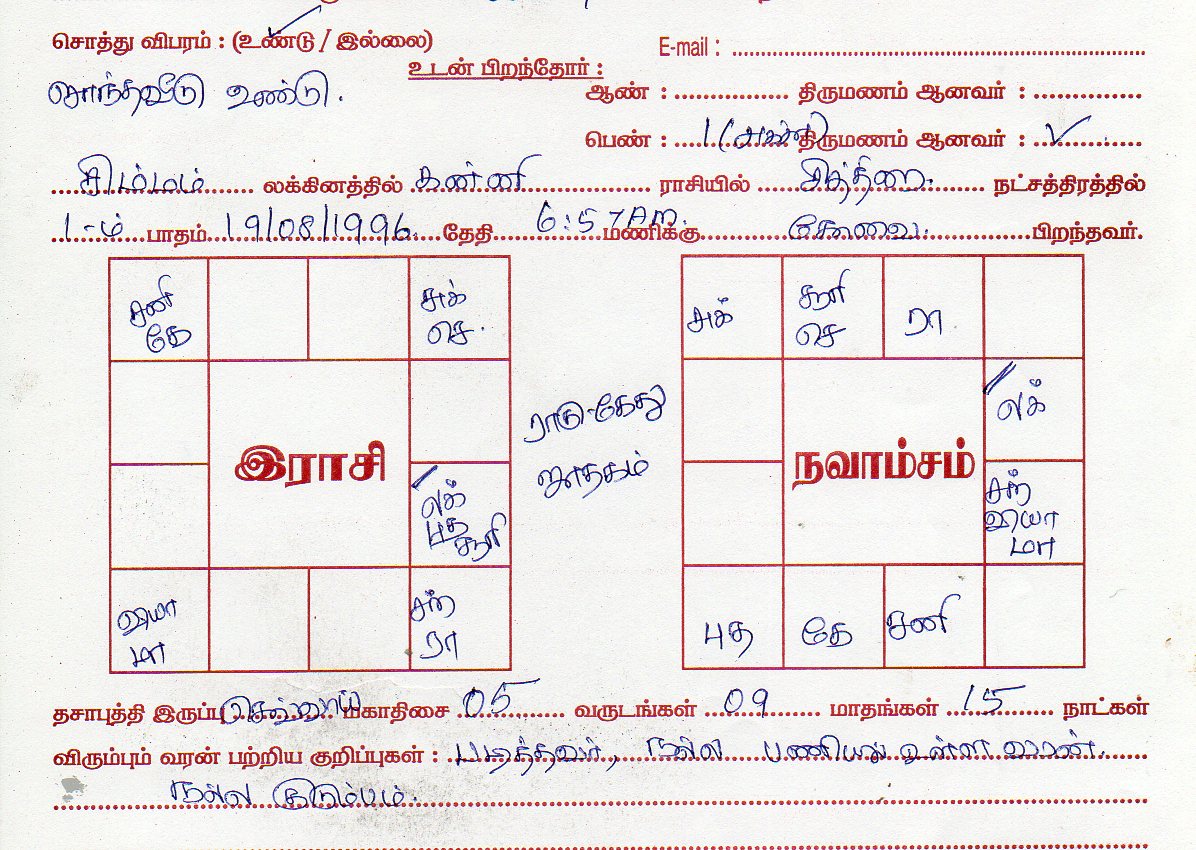 சொத்து விபரம் : (உண்டு / இல்லை)
E-mail :
சொந்தவீடு உண்டு.
உடன் பிறந்தோர் :
ஆண் : திருமணம் ஆனவர் :
பெண் : 1 (அக்கா) திருமணம் ஆனவர் : ✓
சிம்மம் லக்கினத்தில் கன்னி ராசியில் சித்திரை நட்சத்திரத்தில்
1-ம் பாதம் 19/08/1996 தேதி 6:57 A.m. மணிக்கு கோவை. பிறந்தவர்.
சனி
கே
சுக்
செ.
லக்
புத
சூரி
வியா
மா
சந்
ரா
இராசி
ராகு-கேது
ஜாதகம்
சுக்
சூரி
செ
ரா
லக்
சந்
வியா
மா
புத
கே
சனி
நவாம்சம்
தசாபுத்தி இருப்பு செவ்வாய் மகாதிசை 05 வருடங்கள் 09 மாதங்கள் 15 நாட்கள்
விரும்பும் வரன் பற்றிய குறிப்புகள் : படித்தவர், நல்ல பணியில் உள்ள வரன்.
நல்ல குடும்பம்.